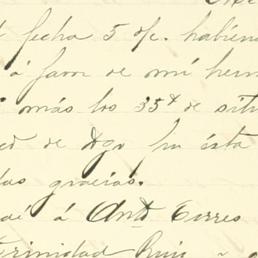 fecha 5 ofc. habién
á favor de mi herm
más los 35 de situ
ed de Dgo en ésta
las gracias.
á Antº Torres
trinidad Ruiz